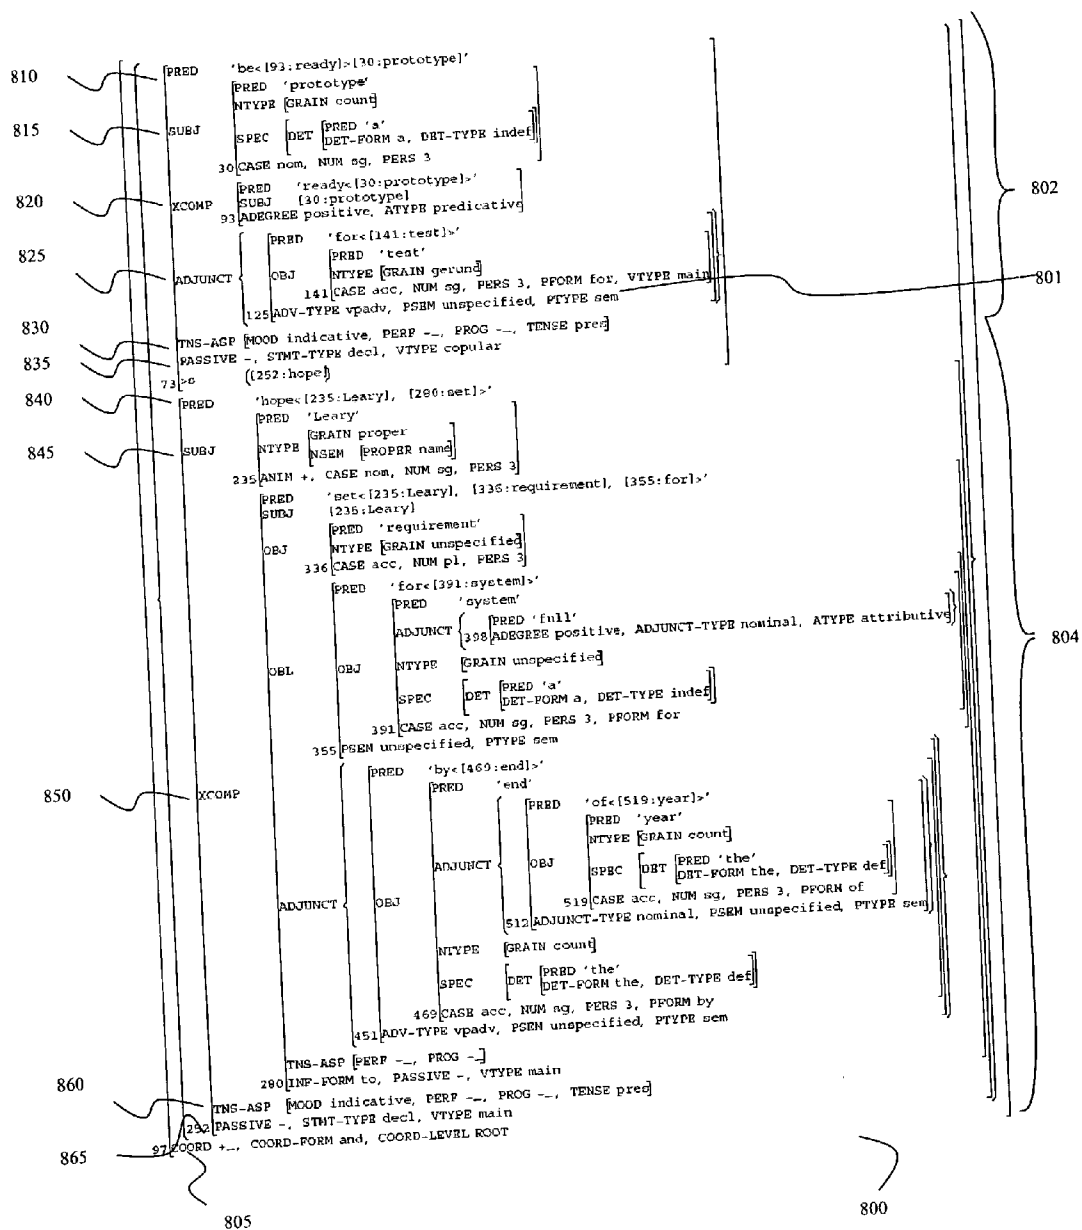 810 PRED 'be<[93:ready]>[30:prototype]'
PRED 'prototype'
NTYPE [GRAIN count]
815 SUBJ SPEC DET PRED 'a'
DET-FORM a, DET-TYPE indef
30 CASE nom, NUM sg, PERS 3
PRED 'ready<[30:prototype]>'
820 XCOMP SUBJ [30:prototype] 802
93 ADEGREE positive, ATYPE predicative
PRED 'for<[141:test]>'
825 PRED 'test'
ADJUNCT OBJ NTYPE [GRAIN gerund]
141 CASE acc, NUM sg, PERS 3, PFORM for, VTYPE main 801
125 ADV-TYPE vpadv, PSEM unspecified, PTYPE sem
830 TNS-ASP [MOOD indicative, PERF -_, PROG -_, TENSE pres]
835 PASSIVE -, STMT-TYPE decl, VTYPE copular
73 >s ([252:hope])
840 PRED 'hope<[235:Leary], [280:set]>'
PRED 'Leary'
GRAIN proper
845 SUBJ NTYPE NSEM [PROPER name]
235 ANIM +, CASE nom, NUM sg, PERS 3
PRED 'set<[235:Leary], [336:requirement], [355:for]>'
SUBJ [235:Leary]
PRED 'requirement'
OBJ NTYPE [GRAIN unspecified]
336 CASE acc, NUM pl, PERS 3
PRED 'for<[391:system]>'
PRED 'system'
ADJUNCT PRED 'full'
398 ADEGREE positive, ADJUNCT-TYPE nominal, ATYPE attributive 804
OBL OBJ NTYPE [GRAIN unspecified]
SPEC DET PRED 'a'
DET-FORM a, DET-TYPE indef
391 CASE acc, NUM sg, PERS 3, PFORM for
355 PSEM unspecified, PTYPE sem
PRED 'by<[469:end]>'
PRED 'end'
850 XCOMP PRED 'of<[519:year]>'
PRED 'year'
NTYPE [GRAIN count]
ADJUNCT OBJ SPEC DET PRED 'the'
DET-FORM the, DET-TYPE def
519 CASE acc, NUM sg, PERS 3, PFORM of
ADJUNCT OBJ 512 ADJUNCT-TYPE nominal, PSEM unspecified, PTYPE sem
NTYPE [GRAIN count]
SPEC DET PRED 'the'
DET-FORM the, DET-TYPE def
469 CASE acc, NUM sg, PERS 3, PFORM by
451 ADV-TYPE vpadv, PSEM unspecified, PTYPE sem
TNS-ASP [PERF -_, PROG -_]
280 INF-FORM to, PASSIVE -, VTYPE main
860 TNS-ASP [MOOD indicative, PERF -_, PROG -_, TENSE pres]
252 PASSIVE -, STMT-TYPE decl, VTYPE main
865 97 COORD +_, COORD-FORM and, COORD-LEVEL ROOT
805 800